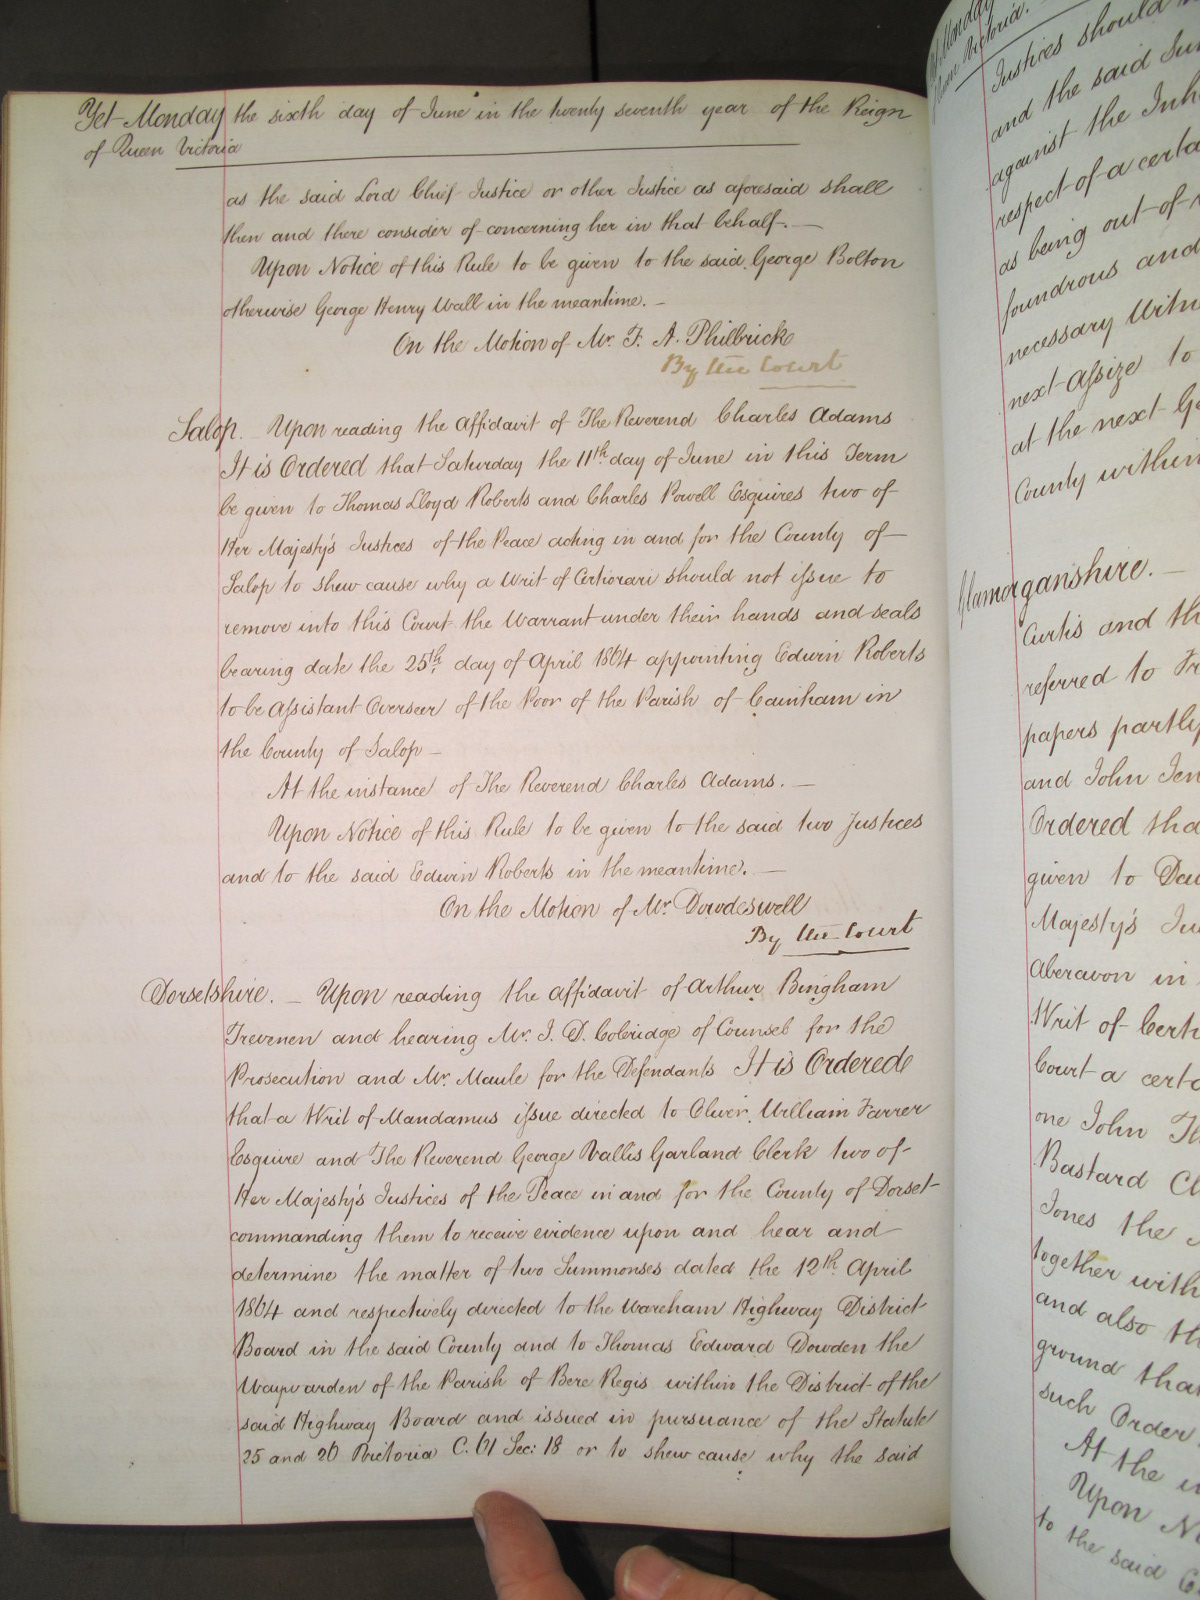 Yet Monday the sixth day of June in the twenty seventh year of the Reign
of Queen Victoria
as the said Lord Chief Justice or other Justice as aforesaid shall
then and there consider of concerning her in that behalf. —
Upon Notice of this Rule to be given to the said George Bolton
otherwise George Henry Wall in the meantime. —
On the Motion of Mr. F. A. Philbrick
By the Court
Salop. — Upon reading the Affidavit of The Reverend Charles Adams
It is Ordered that Saturday the 11th day of June in this Term
be given to Thomas Lloyd Roberts and Charles Powell Esquires two of
Her Majesty's Justices of the Peace acting in and for the County of
Salop to shew cause why a Writ of Certiorari should not issue to
remove into this Court the Warrant under their hands and seals
bearing date the 25th day of April 1864 appointing Edwin Roberts
to be Assistant Overseer of the Poor of the Parish of Cainham in
the County of Salop —
At the instance of The Reverend Charles Adams. —
Upon Notice of this Rule to be given to the said two Justices
and to the said Edwin Roberts in the meantime. —
On the Motion of Mr. Dowdeswell
By the Court
Dorsetshire. — Upon reading the Affidavit of Arthur Bingham
Trevenen and hearing Mr. J. D. Coleridge of Counsel for the
Prosecution and Mr. Maule for the Defendants It is Ordered
that a Writ of Mandamus issue directed to Oliver William Farrer
Esquire and The Reverend George Vallis Garland Clerk two of
Her Majesty's Justices of the Peace in and for the County of Dorset
commanding them to receive evidence upon and hear and
determine the matter of two Summonses dated the 12th April
1864 and respectively directed to the Wareham Highway District
Board in the said County and to Thomas Edward Dowden the
Waywarden of the Parish of Bere Regis within the District of the
said Highway Board and issued in pursuance of the Statute
25 and 26 Victoria C. 61 Sec: 18 or to shew cause why the said
Monday
Victoria.
Justices should
and the said
against the
respect of a certa
as being out of
foundrous and
necessary
next Assize to
at the next
County within
Glamorganshire. —
Curtis and th
referred to
papers partly
and John Jen
Ordered tha
given to
Majesty's
Aberavon in
Writ of Certi
Court a certa
one John
Bastard
Jones the
together with
and also th
ground that
such Order
At the in
Upon No
to the said